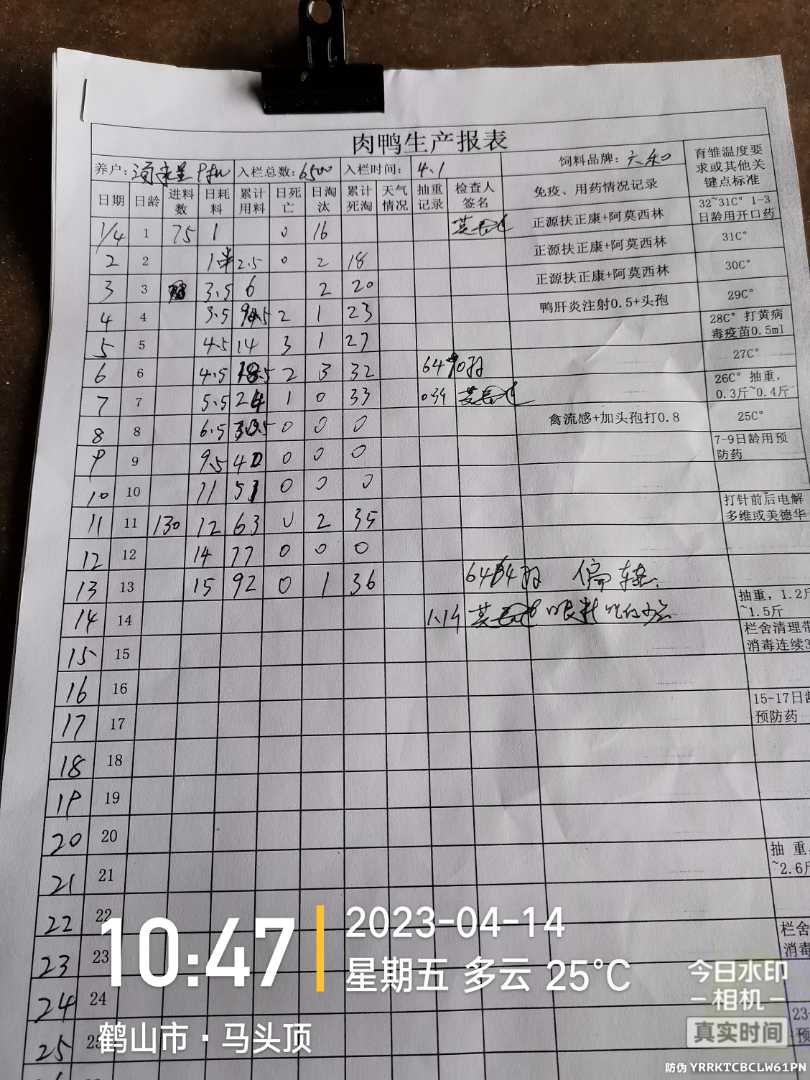 肉鸭生产报表
养户: 入栏总数:6500 入栏时间:4.1 饲料品牌:六和 育雏温度要求或其他关键点标准
日期 日龄 进料数 日耗料 累计用料 日死亡 日淘汰 累计死淘 天气情况 抽重记录 检查人签名 免疫、用药情况记录
1/4 1 75 1 0 16 正源扶正康+阿莫西林 32~31C° 1-3日龄用开口药
2 2 2.5 0 2 18 正源扶正康+阿莫西林 31C°
3 3 3.5 6 2 20 正源扶正康+阿莫西林 30C°
4 4 3.5 9.5 2 1 23 鸭肝炎注射0.5+头孢 29C°
5 5 4.5 14 3 1 27 28C° 打黄病毒疫苗0.5ml
6 6 4.5 18.5 2 3 32 27C°
7 7 5.5 24 1 0 33 26C° 抽重,0.3斤~0.4斤
8 8 6.5 30.5 0 0 0 禽流感+加头孢打0.8 25C°
9 9 9.5 40 0 0 0 7-9日龄用预防药
10 10 11 51 0 0 0
11 11 130 12 63 0 2 35 打针前后电解多维或美德华
12 12 14 77 0 0 0
13 13 15 92 0 1 36 偏轻.
14 14 1.14 抽重,1.2斤~1.5斤
15 15 栏舍清理带 消毒连续3
16 16
17 17 15-17日龄 预防药
18 18
19 19
20 20
21 21 抽重, ~2.6斤
22 22
23 23 栏舍 消毒
24 24
25 25 23- 预
10:47
2023-04-14
星期五 多云 25℃
鹤山市·马头顶
今日水印
-相机-
真实时间
防伪 YRRKTCBCLW61PN